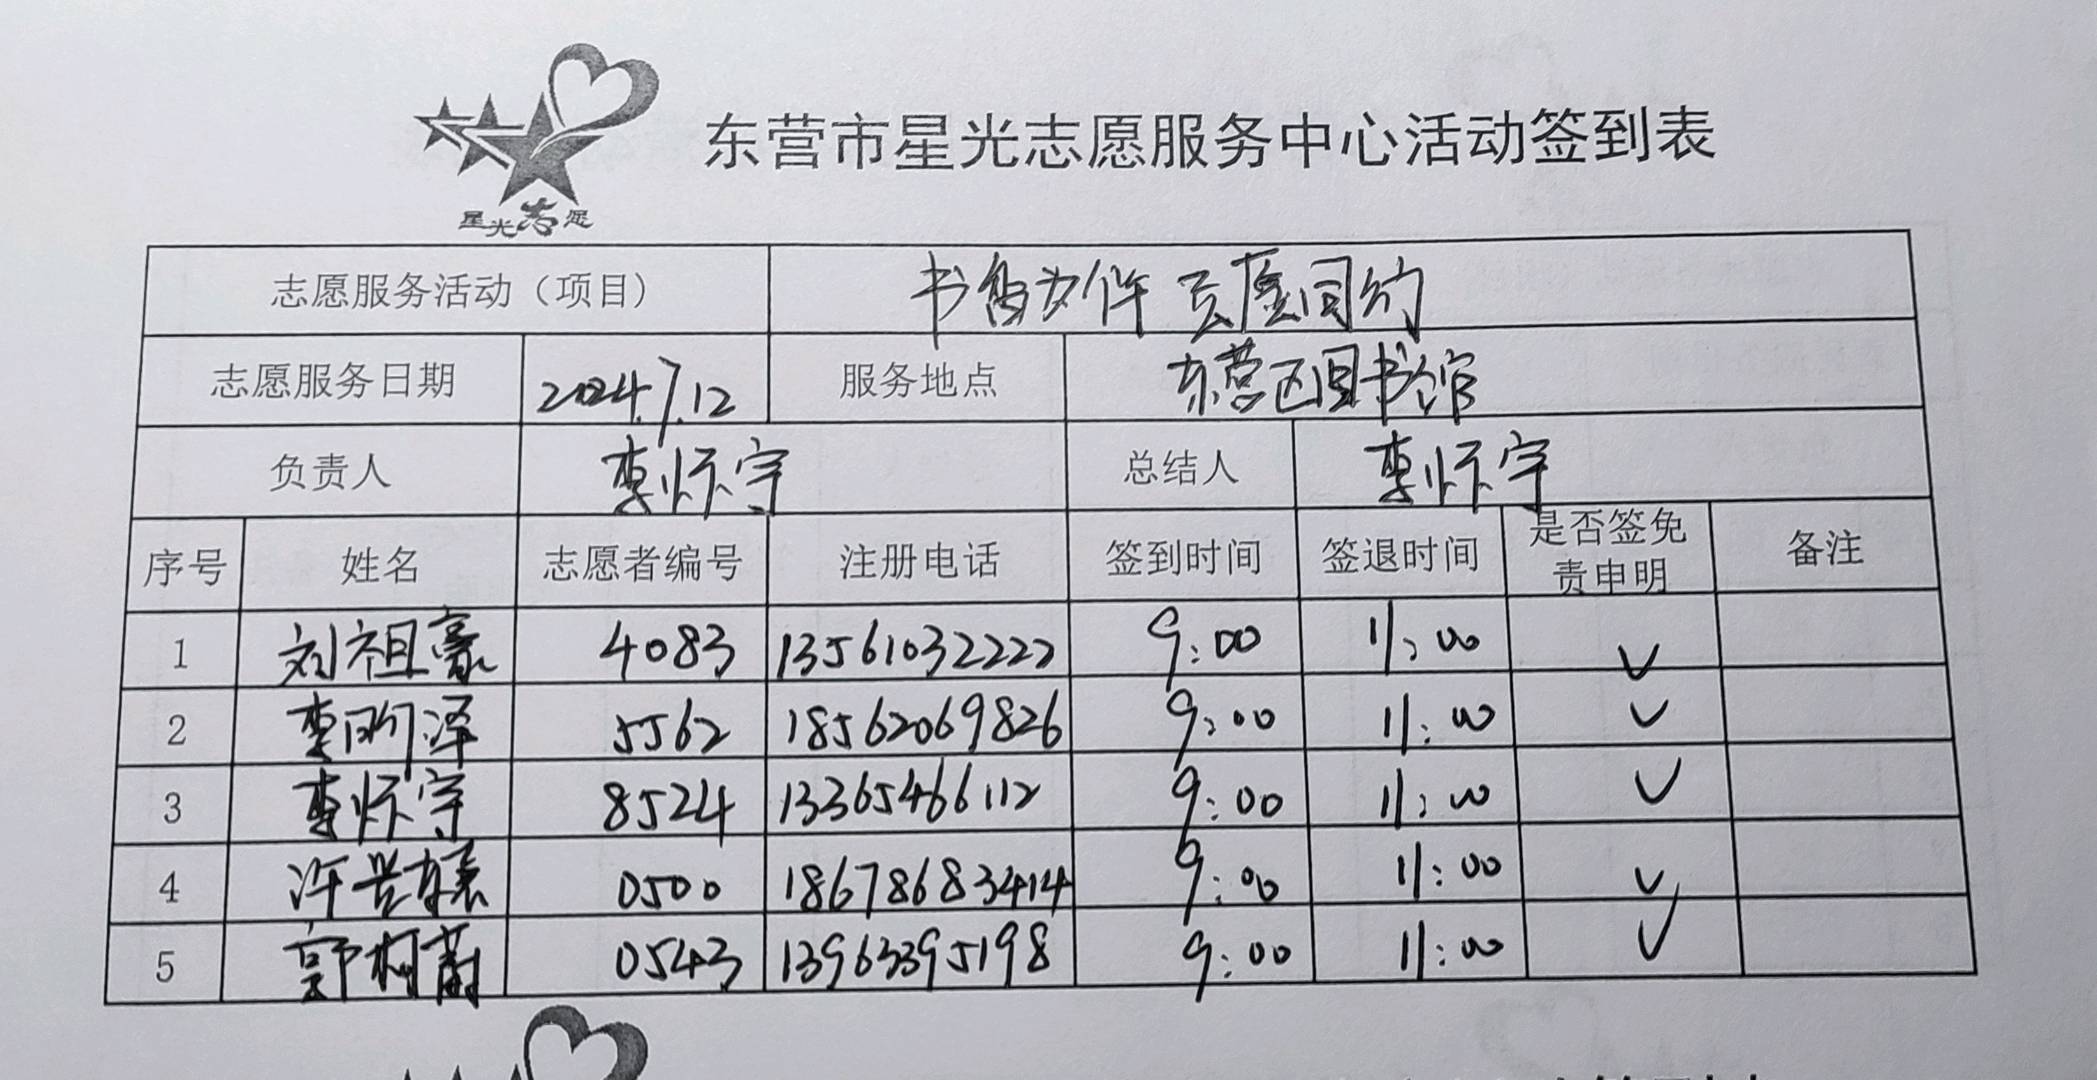 星光志愿
东营市星光志愿服务中心活动签到表
志愿服务活动（项目） 书香为伴 志愿同行
志愿服务日期 2024.7.12 服务地点 东营区图书馆
负责人 李怀宇 总结人 李怀宇
序号 姓名 志愿者编号 注册电话 签到时间 签退时间 是否签免责申明 备注
1 刘祖豪 4083 13561032222 9:00 11:00 ✓
2 李明泽 5562 18562069826 9:00 11:00 ✓
3 李怀宇 8524 13365466112 9:00 11:00 ✓
4 0500 18678683414 9:00 11:00 ✓
5 郭柯蔚 0543 13963395198 9:00 11:00 ✓